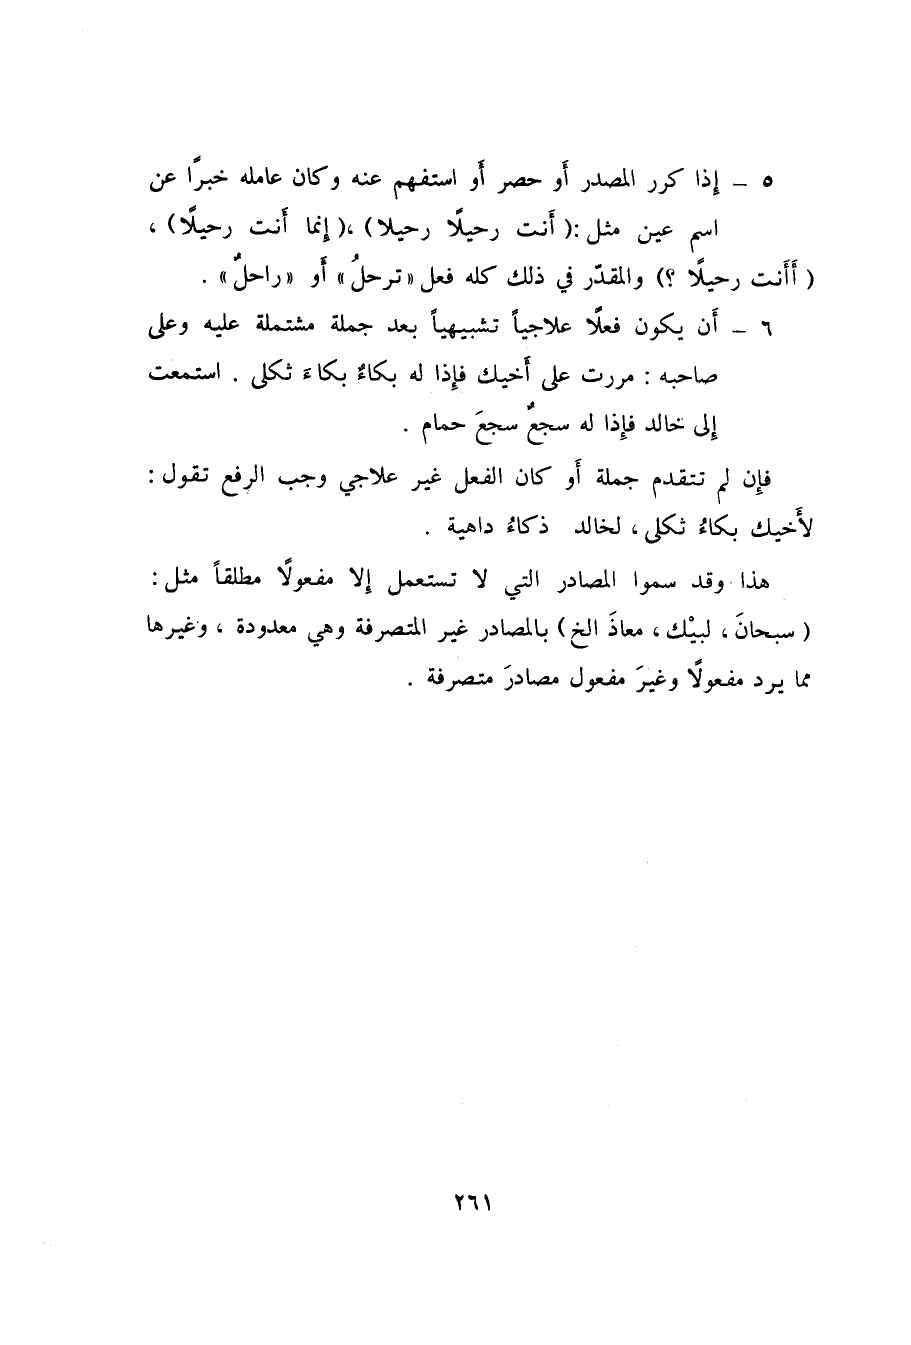 ٥ - إذا كرر المصدر أو حصر أو استفهم عنه وكان عامله خبرًا عن
اسم عين مثل : ( أنت رحيلًا رحيلا ) ، ( إنما أنت رحيلًا ) ،
( أأنت رحيلًا ؟ ) والمقدّر في ذلك كله فعل « ترحلُ » أو « راحلٌ » .
٦ - أن يكون فعلًا علاجياً تشبيهياً بعد جملة مشتملة عليه وعلى
صاحبه : مررت على أخيك فإذا له بكاءٌ بكاءَ ثكلى . استمعت
إلى خالد فإذا له سجعٌ سجعَ حمام .
فإن لم تتقدم جملة أو كان الفعل غير علاجي وجب الرفع تقول :
لأخيك بكاءُ ثكلى ، لخالد ذكاءُ داهية .
هذا وقد سموا المصادر التي لا تستعمل إلا مفعولًا مطلقاً مثل :
( سبحانَ ، لبيْك ، معاذَ الخ ) بالمصادر غير المتصرفة وهي معدودة ، وغيرها
مما يرد مفعولًا وغيرَ مفعول مصادرَ متصرفة .
٢٦١